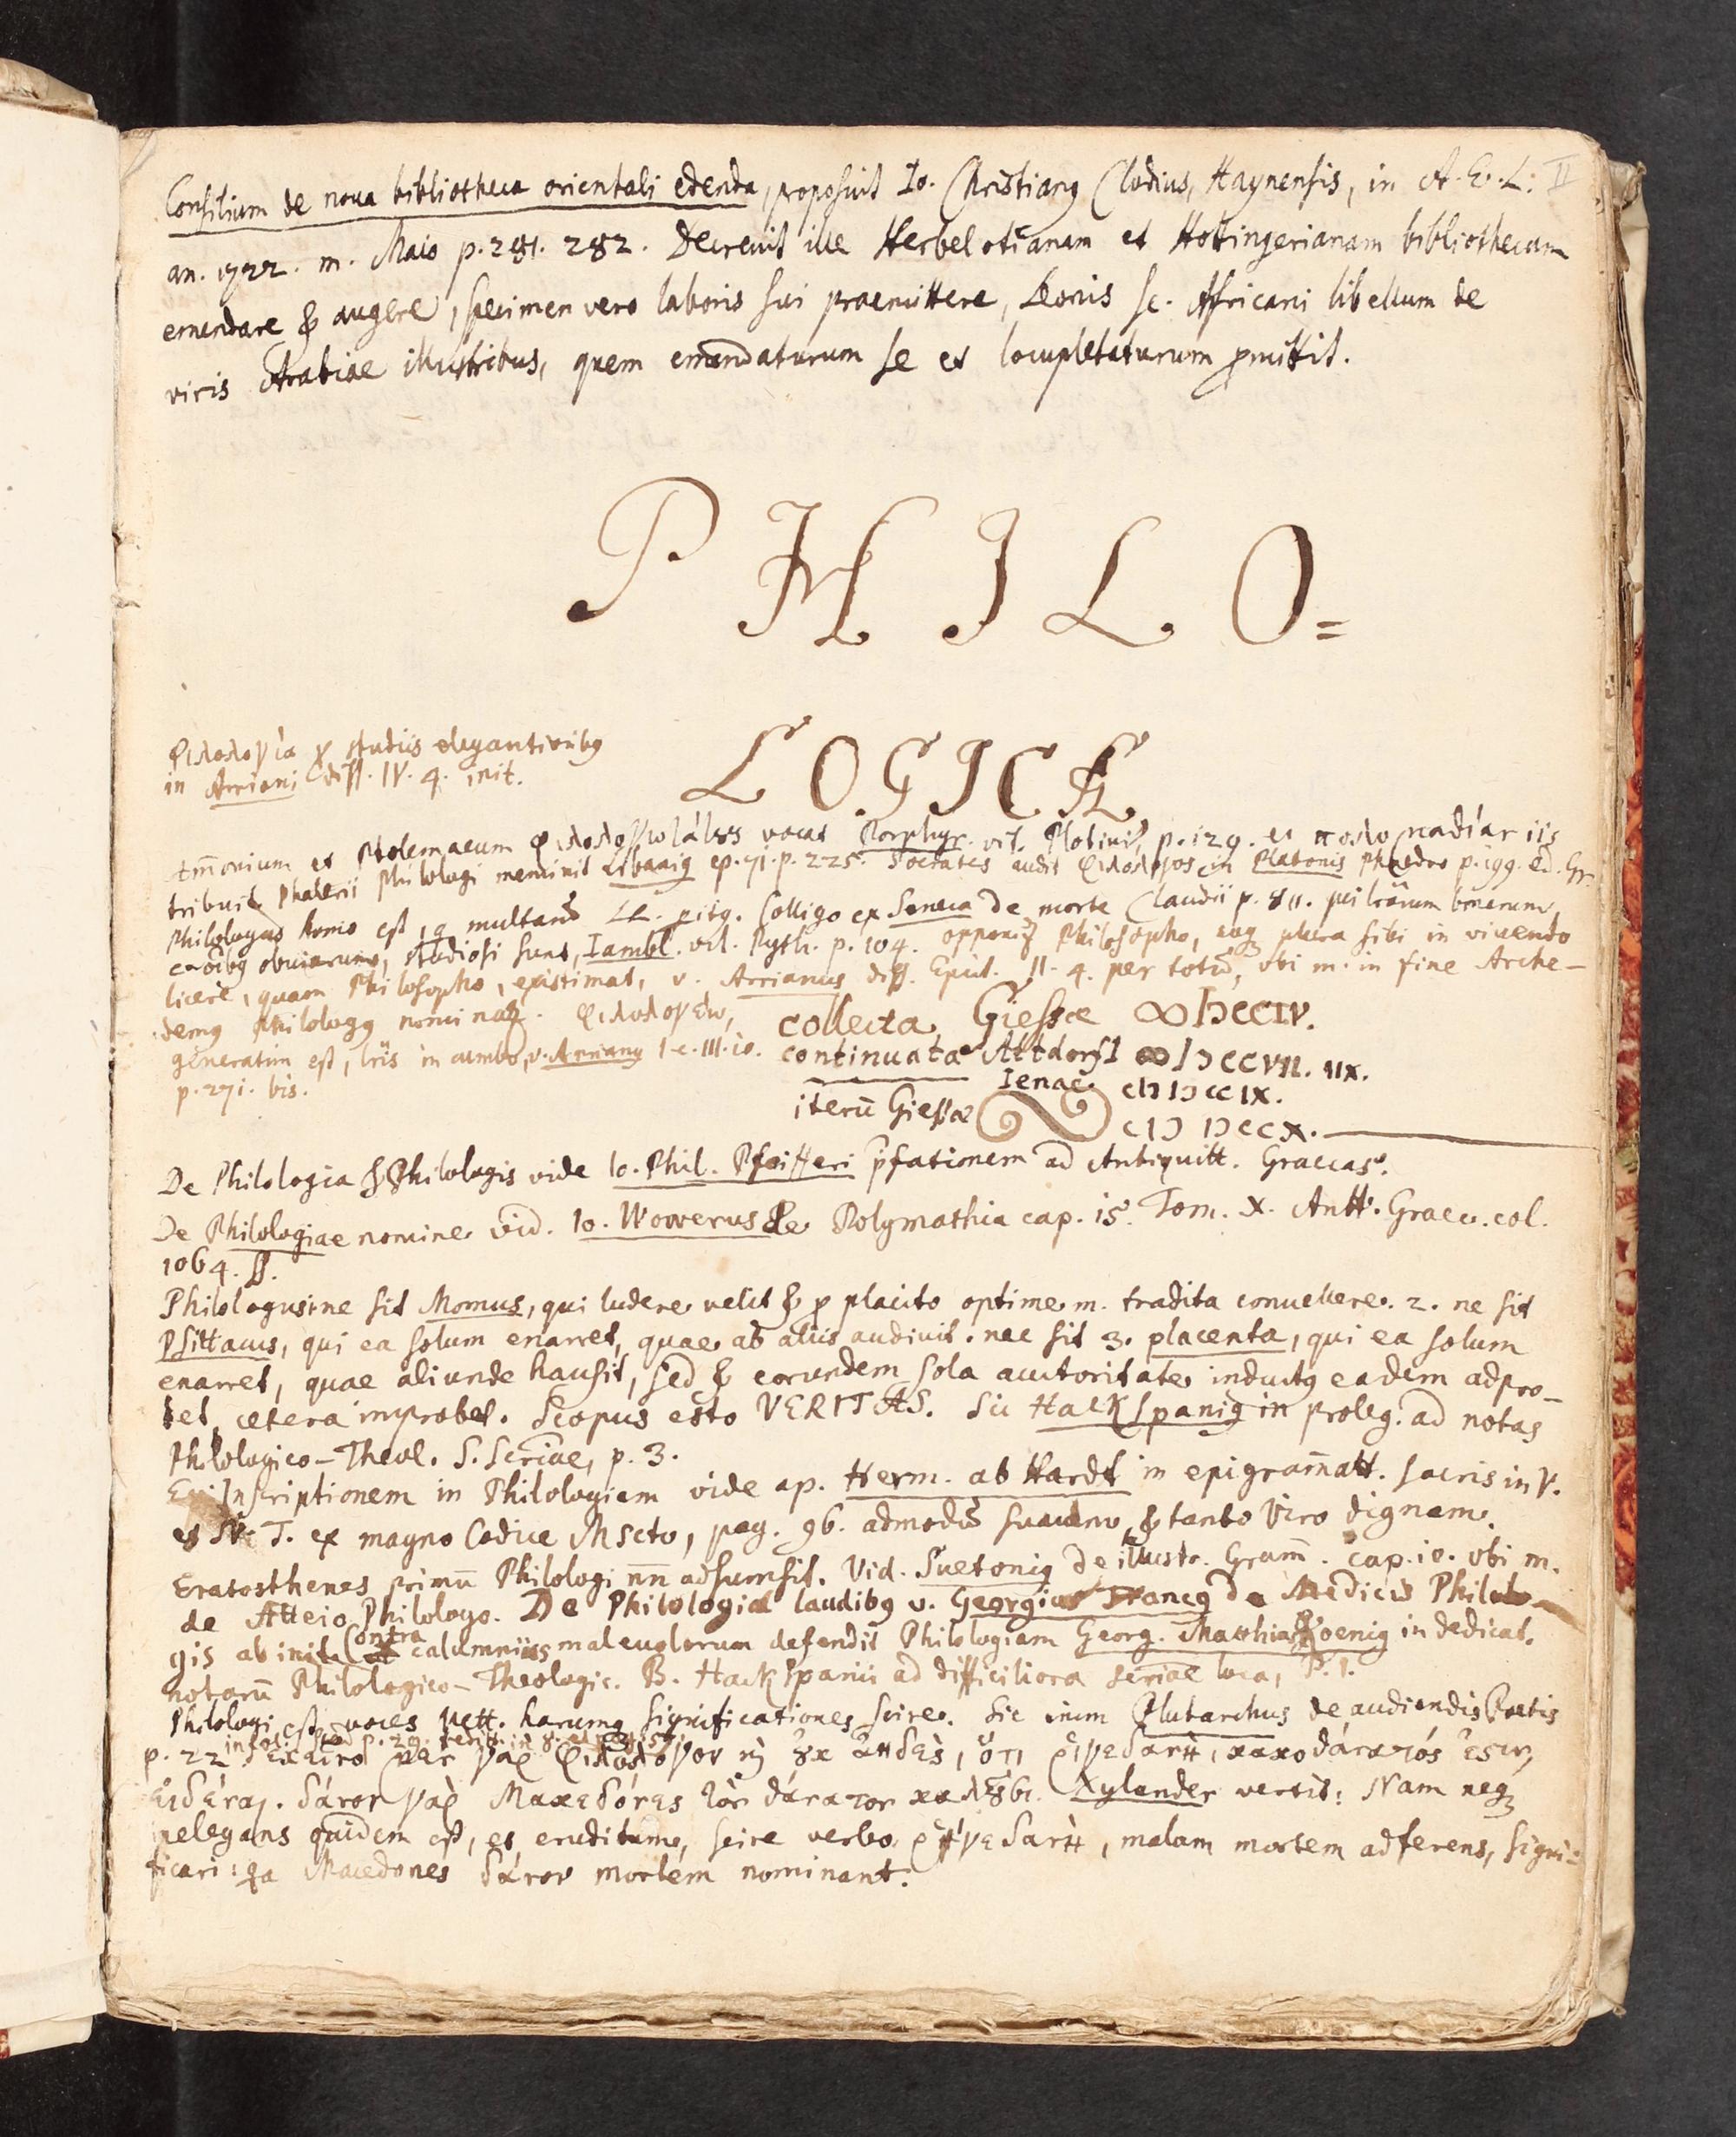 Consilium de noua bibliotheca orientali edenda, proposuit Io. Christianꝯ Clodius, Haynensis, in A. E. L. II
an. 1722. m. Maio p. 281. 282. Decreuit ille Herbelotianam et Hottingerianam bibliothecam
emendare & augere, specimen vero laboris sui praemittere, Leonis sc. Africani libellum de
viris Arabiae illustribus, quem emendaturum se et locupletaturum promittit.
PHILO=
LOGICA
Φιλολογία studiis elegantioribꝯ
in Arriani diss. IV. 4. init.
Ammonium et Ptolemaeum vocat Porphyr. vit. Plotini, p. 129. et iis
tribuit Phalerii Philologi meminit Libaniꝯ ep. 71. p. 225. Socrates audit φιλόλογος in Platonis Phaedro p. 199. ed. Gr.
Philologus homo est, multarū Colligo ex Seneca de morte Claudii p. 811.
obuiarum, studiosi sunt, Iambl. vit. Pyth. p. 104. opponit Philosopho, plura sibi in viuendo
licere, quam Philosopho, existimat, v. Arrianus diss. Epict. II. 4. per totū, ubi m. in fine Arche-
demꝯ Philologꝯ nominat. Φιλολογέω,
generatim est, v. Arrianꝯ l. c. III. 10.
p. 271. bis.
collecta Giessae ∞IƆCCIV.
continuata Altdorfi ∞IƆCCVII. IIX.
Ienae CIƆ IƆCCIX.
iterū Giessae CIƆ IƆCCX.
De Philologia & Philologis vide Io. Phil. Pfeifferi p̄fationem ad Antiquitt. Graecas.
De Philologiae nomine vid. Io. Wowerus de Polymathia cap. 15. Tom. X. Antt. Graec. col.
1064. ss.
Philologus ne sit Momus, qui ludere velit & p placito optime m. tradita conuellere. 2. ne sit
Psittacus, qui ea solum enarret, quae ab aliis audiuit. nec sit 3. placenta, qui ea solum
enarret, quae aliunde hausit, sed & eorundem sola auctoritate inductꝯ eadem adpro-
bet, cetera improbet. Scopus esto VERITAS. Sic Hackspaniꝯ in proleg. ad notas
Philologico-Theol. S. Scriae, p. 3.
Inscriptionem in Philologiam vide ap. Herm. ab Hardt in epigram̄att. sacris in V.
et N. T. ex magno Codice Mscto, pag. 96. admodū suauem, & tanto Viro dignam.
Eratosthenes primū Philologi nn̄ adsumsit. Vid. Suetoniꝯ de illustr. Gram̄. cap. 10. ubi m.
de Atteio Philologo. De Philologiae laudibꝯ v. Georgius Francꝯ de Medicis Philolo-
gis ab init. Contra calumnias maleuolorum defendit Philologiam Georg. Matthias Koenig in dedicat.
notarū Philologico-Theologic. B. Hackspanii ad difficiliora scriae loca, P. I.
Philologi est, voces vett. harumꝗ significationes scire. Sic enim Plutarchus de audiendis Poetis
p. 22 Ἐκεῖνο μὲν γὰρ φιλόλογον καὶ οὐκ ἀηδὲς, ὅτι ῥιγεδανὴ, κακοθάνατός ἐστιν,
εἰδέναι. δάνον γὰρ Μακεδόνες τὸν θάνατον καλοῦσι. Xylander vertit: Nam neqꝫ
inelegans quidem est, et eruditum, scire verbo ῥιγεδανὴ, malam mortem adferens, signi-
ficari: qa Macedones δάνον mortem nominant.